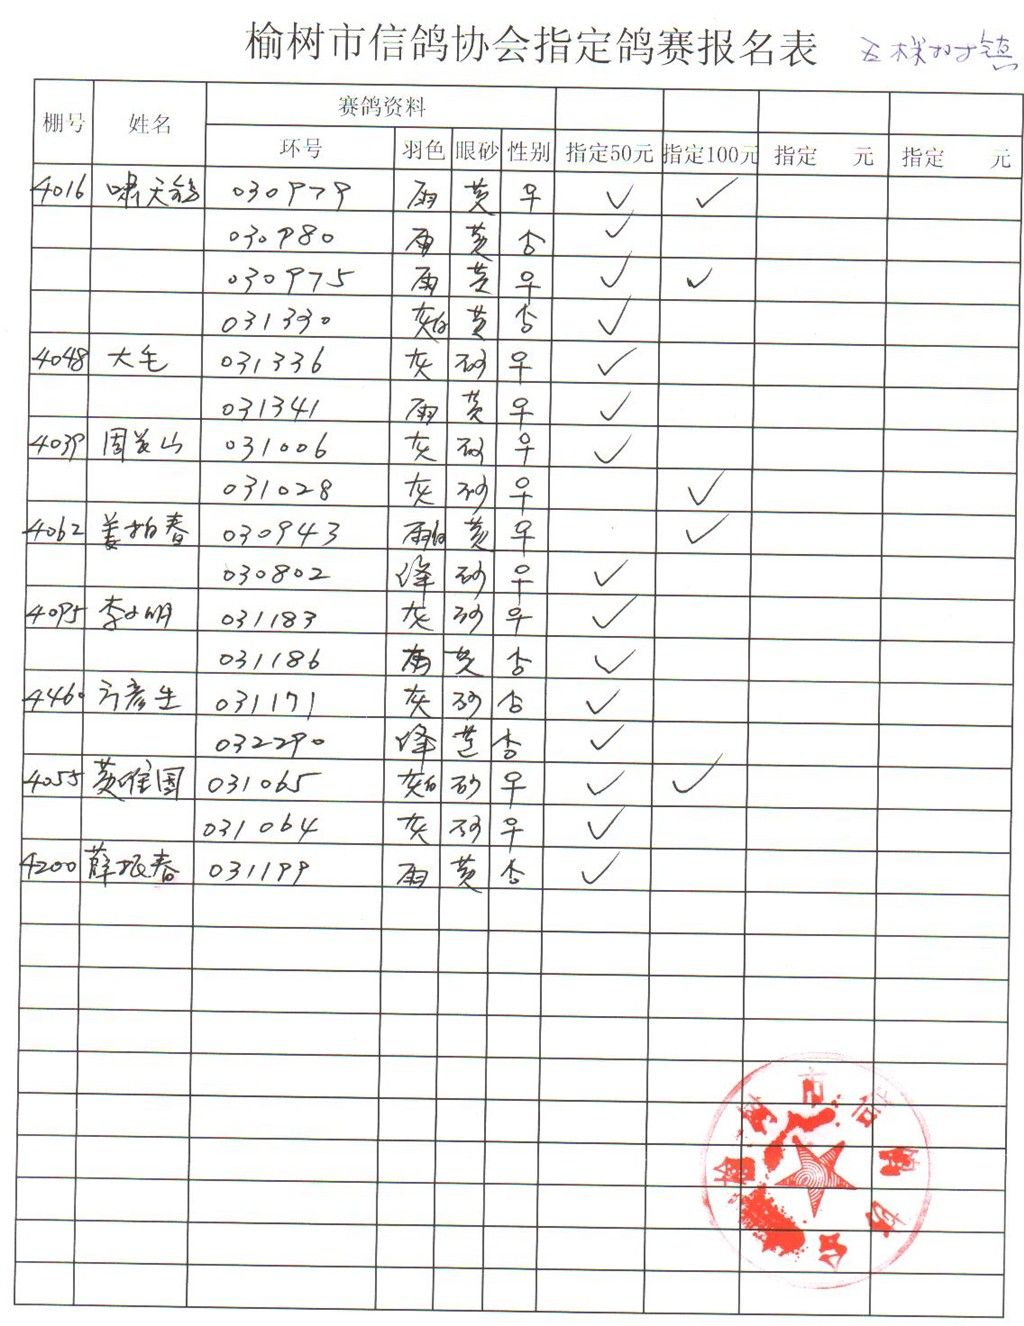 榆树市信鸽协会指定鸽赛报名表 五棵树镇
棚号 姓名 赛鸽资料
环号 羽色 眼砂 性别 指定50元 指定100元 指定 元 指定 元
4016 啸天鸽 030979 雨 黄 ♀ ✓ ✓
030980 雨 黄 ✓
030975 雨 黄 ♀ ✓ ✓
031330 灰白 黄 ✓
4048 大毛 031336 灰 砂 ♀ ✓
031341 雨 黄 ♀ ✓
4039 周 山 031006 灰 砂 ♀ ✓
031028 灰 砂 ♀ ✓
4062 姜柏春 030943 雨白 黄 ♀ ✓
030802 绛 砂 ♀ ✓
4095 李小明 031183 灰 砂 ♀ ✓
031186 雨 黄 ✓
4460 彦生 031171 灰 砂 ✓
032290 绛 黄 ✓
4055 黄维国 031065 灰白 砂 ♀ ✓ ✓
031064 灰 砂 ♀ ✓
4200 薛振春 031199 雨 黄 ✓
榆树市信鸽协会